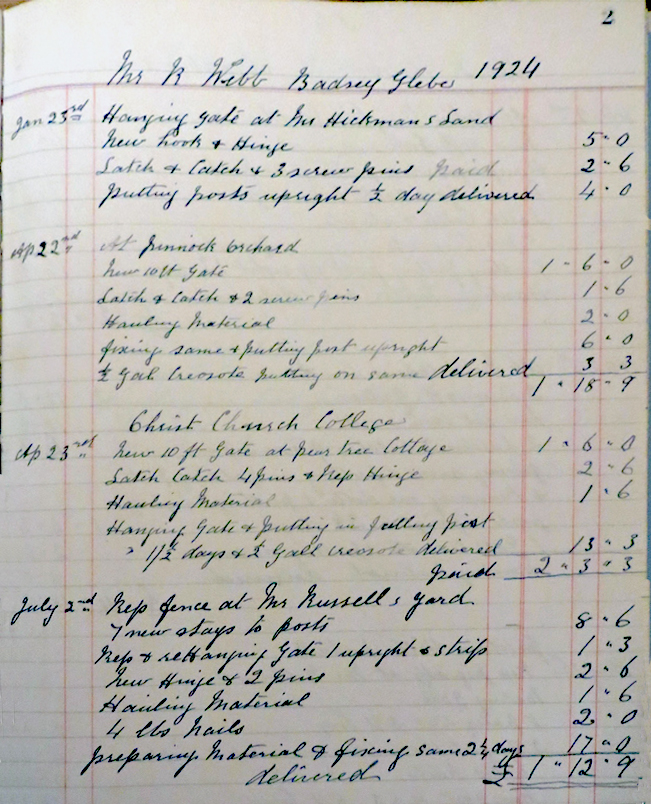 2
Mr R Webb Badsey Glebe 1924
Jan 23rd Hanging gate at Mr Hickmans Land
New hook & Hinge 5 " 0
Latch & Catch & 3 screw pins paid 2 " 6
Putting posts upright ½ day delivered 4 " 0
Ap 22nd At Pinnock Orchard
New 10 ft Gate 1 " 6 " 0
Latch & Catch & 2 screw pins 1 " 6
Hauling Material 2 " 0
fixing same & putting post upright 6 " 0
½ Gal Creosote putting on same delivered 3 " 3
1 " 18 " 9
Christ Church College
Ap 23rd New 10 ft Gate at pear tree Cottage 1 " 6 " 0
Latch Catch 4 pins & Rep Hinge 2 " 6
Hauling Material 1 " 6
Hanging Gate & putting in falling post
" 1½ days & ½ Gall creosote delivered 13 " 3
paid 2 " 3 " 3
July 2nd Rep fence at Mr Russell s yard
7 new stays to posts 8 " 6
Rep & reHanging Gate 1 upright & strip 1 " 3
New Hinge & 2 pins 2 " 6
Hauling Material 1 " 6
4 lbs Nails 2 " 0
preparing Material & fixing same 2¼ days 17 " 0
delivered £ 1 " 12 " 9